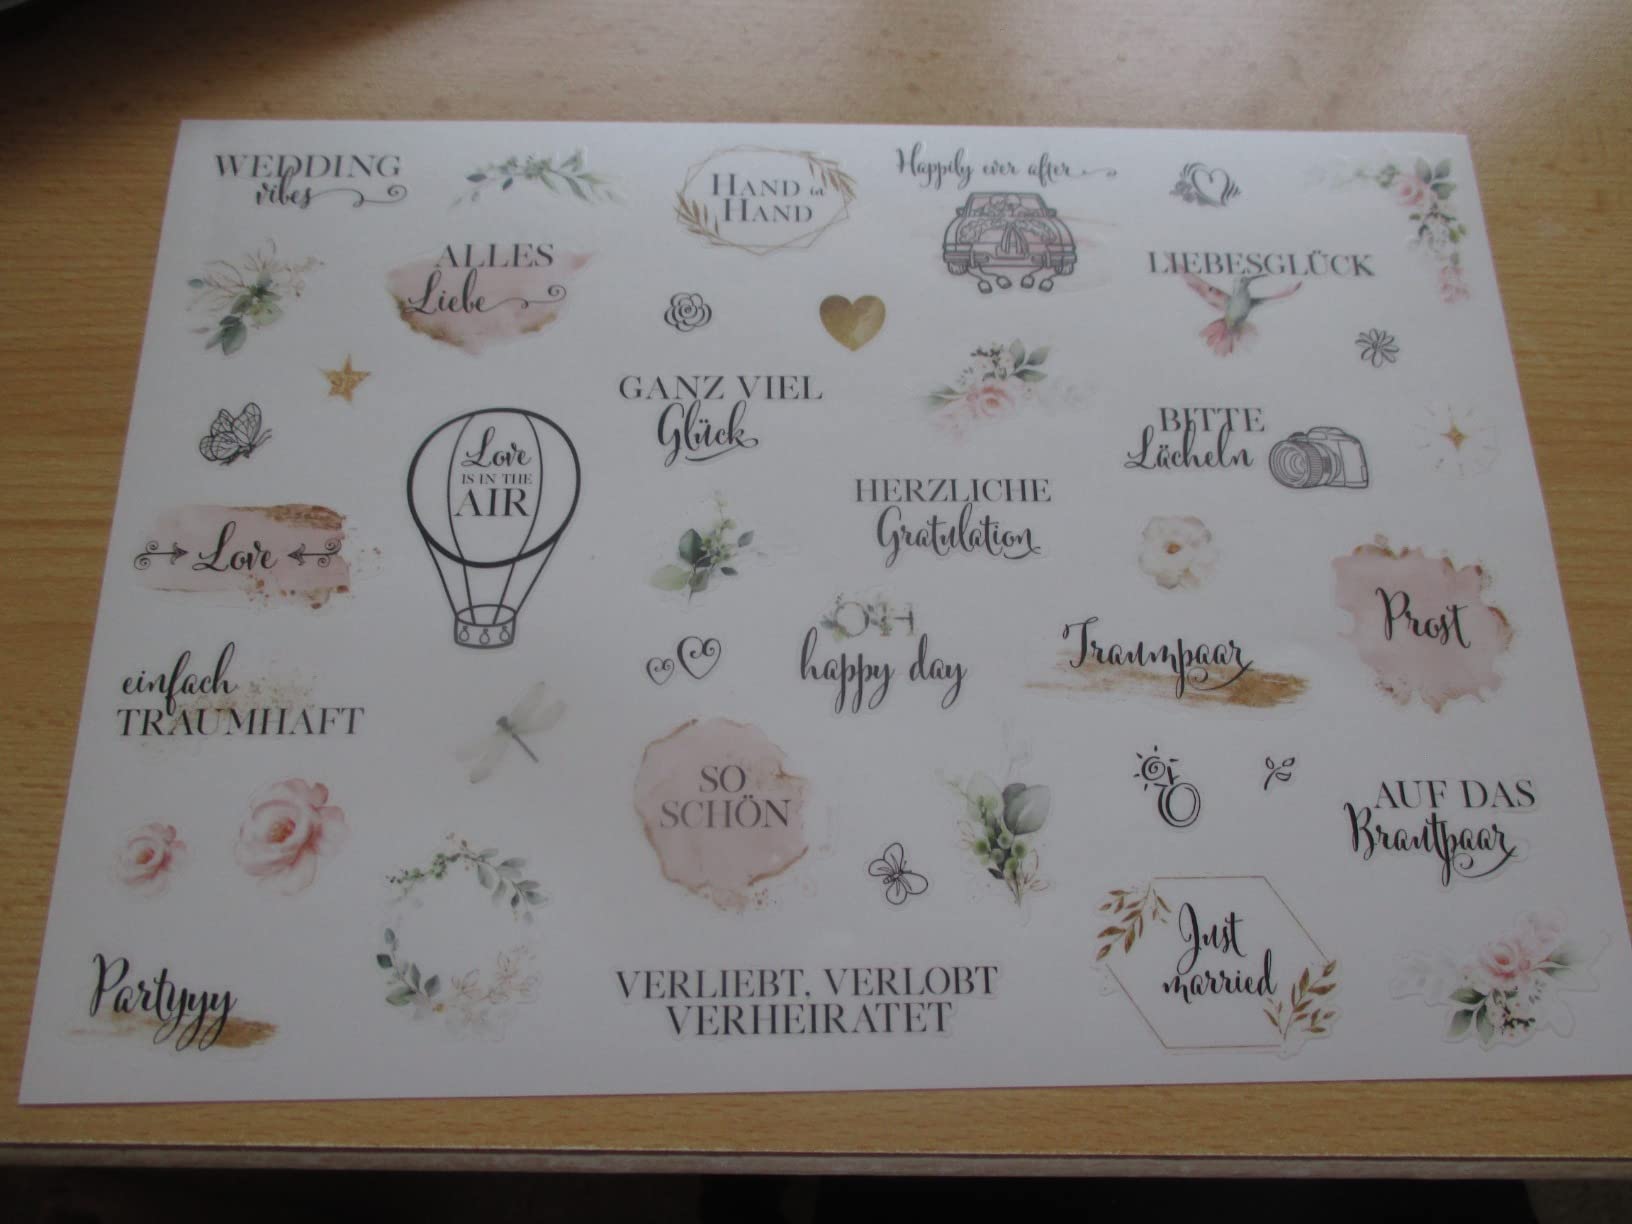 WEDDING
vibes
HAND in
HAND
Happily ever after
ALLES
Liebe
LIEBESGLÜCK
GANZ VIEL
Glück
BITTE
Lächeln
Love
IS IN THE
AIR
HERZLICHE
Gratulation
Love
Prost
OH
happy day
Traumpaar
einfach
TRAUMHAFT
SO
SCHÖN
AUF DAS
Brautpaar
Just
married
Partyyy
VERLIEBT, VERLOBT
VERHEIRATET